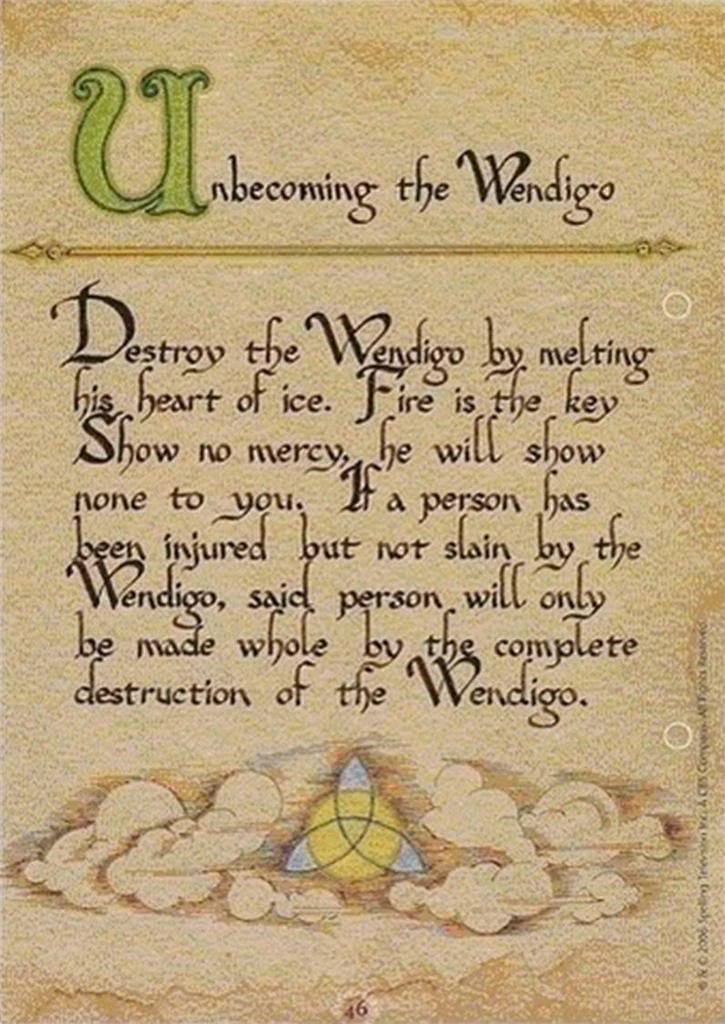 Unbecoming the Wendigo
Destroy the Wendigo by melting
his heart of ice. Fire is the key
Show no mercy, he will show
none to you. If a person has
been injured but not slain by the
Wendigo, said person will only
be made whole by the complete
destruction of the Wendigo.
46
® & © 2006 Spelling Television Inc. A CBS Company. All Rights Reserved.